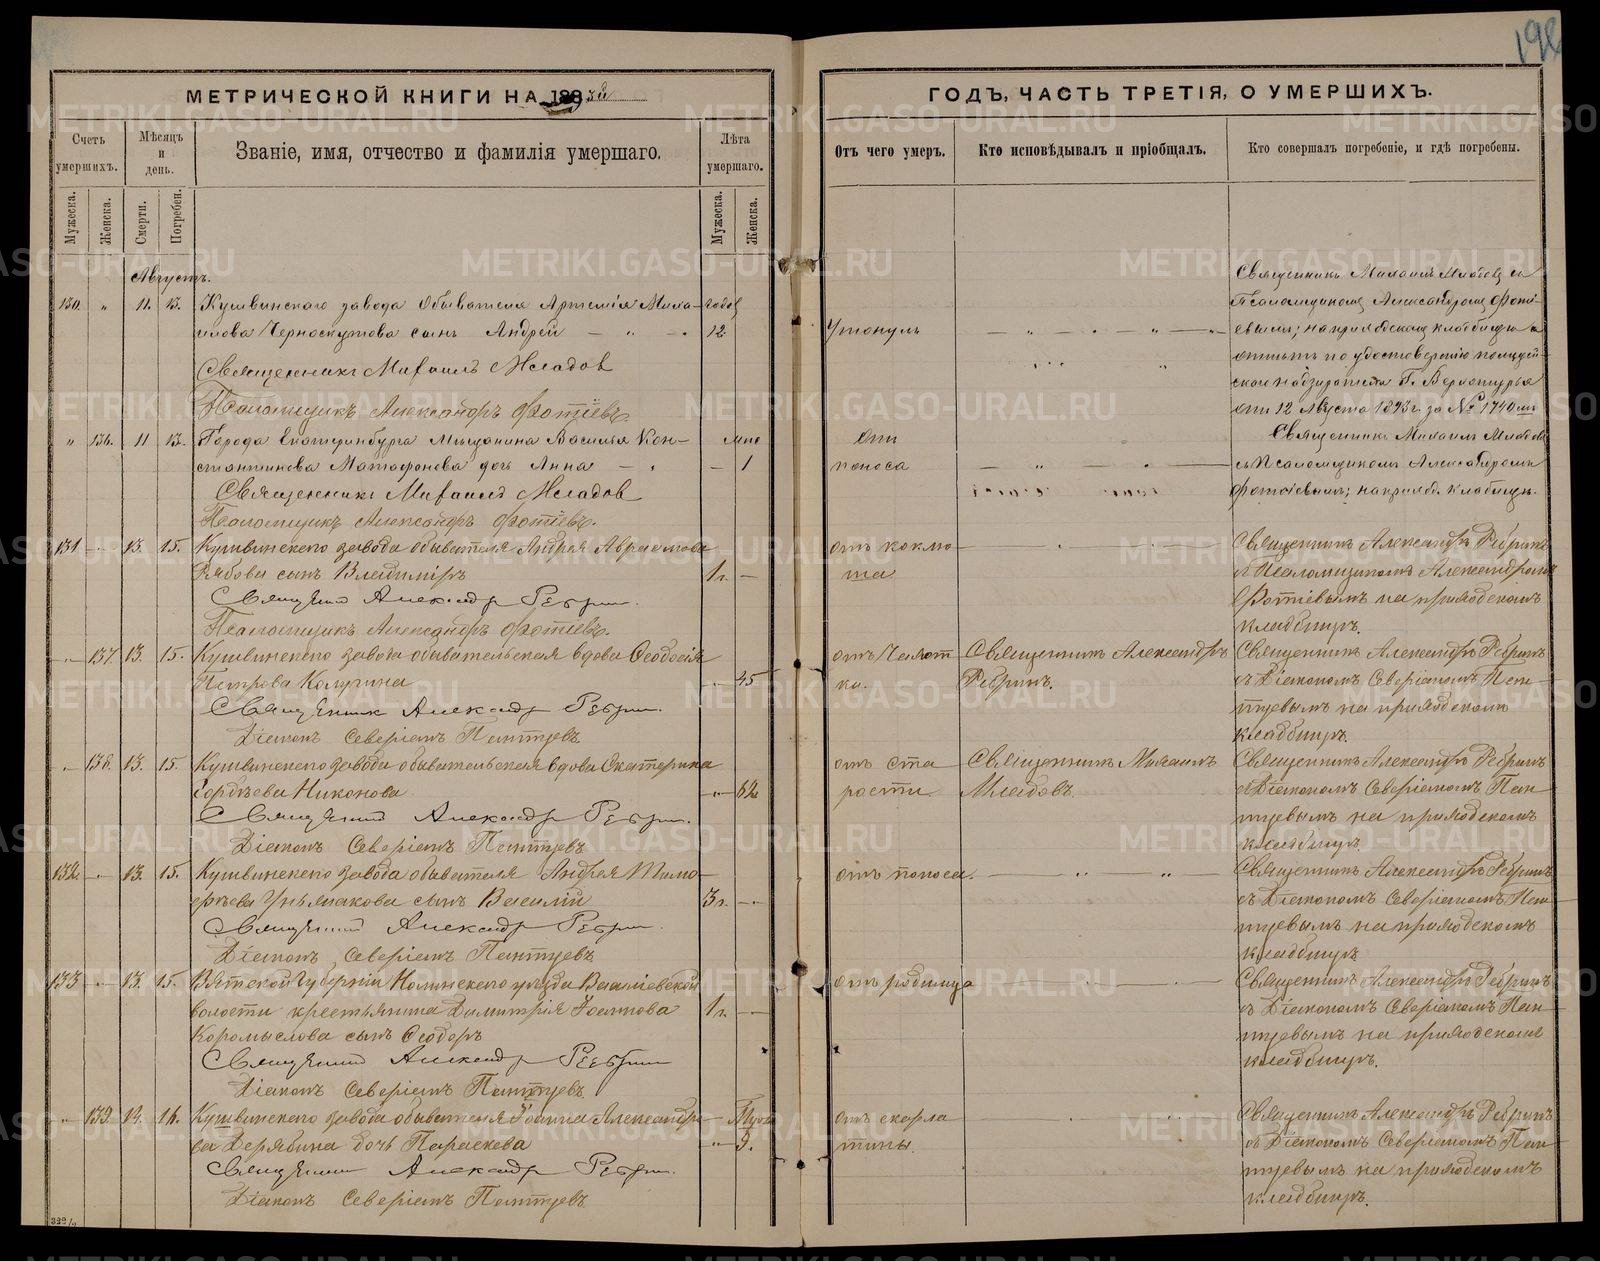 198
МЕТРИЧЕСКОЙ КНИГИ НА 1893й
ГОДЪ, ЧАСТЬ ТРЕТІЯ, О УМЕРШИХЪ.
Счетъ умершихъ.
Мѣсяцъ и день.
Званіе, имя, отчество и фамилія умершаго.
Лѣта умершаго.
Отъ чего умеръ.
Кто исповѣдывалъ и пріобщалъ.
Кто совершалъ погребеніе, и гдѣ погребены.
Мужеска. Женска. Смерти. Погребен. Мужеска. Женска.
Августъ.
130. " 11. 13. Кушвинскаго завода Обывателя Артемія Миха- годов
илова Черноскутова сынъ Андрей — " — 12
Священникъ Михаилъ Младов
Псаломщикъ Александръ Фотіевъ.
Утонулъ
Священникъ Михаилъ Младовъ съ
Псаломщикомъ Александромъ Фоті-
евымъ; на приходскомъ кладбищѣ а
отпетъ по удостоверенію полицей-
скаго надзирателя Г. Верхотурья
отъ 12 Августа 1893 г. за № 1740
" 136. 11 13. Города Екатеринбурга Мещанина Василія Кон-
стантинова Матафонова дочь Анна — " — 1
Священникъ Михаилъ Младов
Псаломщикъ Александръ Фотіевъ.
отъ
поноса
Священникъ Михаилъ Младовъ
съ Псаломщикомъ Александромъ
Фотіевымъ; на приход. кладбищѣ.
131 " 13. 15. Кушвинскаго завода обывателя Андрея Авраамова
Рябова сынъ Владиміръ 1 г. —
Священник Александр Ребрин.
Псаломщикъ Александръ Фотіевъ.
отъ коклю-
ша
Священникъ Александръ Ребринъ
съ Псаломщикомъ Александромъ
Фотіевымъ на приходскомъ
кладбищѣ.
" 137. 13. 15. Кушвинскаго завода обывательская вдова Ѳеодосія
Петрова Калугина " 45
Священник Александр Ребрин.
Діаконъ Северіанъ Пантуевъ
отъ Чахот
ки.
Священникъ Александръ
Ребринъ.
Священникъ Александръ Ребринъ
съ Діакономъ Северіаномъ Пан-
туевымъ на приходскомъ
кладбищѣ.
" 138. 13. 15. Кушвинскаго завода обывательская вдова Екатерина
Гордѣева Никонова " 62
Священник Александр Ребрин.
Діаконъ Северіанъ Пантуевъ
отъ ста
рости
Священникъ Михаилъ
Младовъ
Священникъ Александръ Ребринъ
съ Діакономъ Северіаномъ Пан-
туевымъ на приходскомъ
кладбищѣ.
132. " 13. 15. Кушвинскаго завода обывателя Андрея Тимо-
ѳѣева сынъ Василій 3 г. —
Священник Александр Ребрин.
Діаконъ Северіанъ Пантуевъ
отъ поноса.
Священникъ Александръ Ребринъ
съ Діакономъ Северіаномъ Пан-
туевымъ на приходскомъ
кладбищѣ
133 " 13. 15. Вятской Губерніи Нолинскаго уѣзда Васильевской
волости крестьянина Димитрія Іоаннова 1 г. —
Коромыслова сынъ Ѳеодоръ
Священник Александр Ребрин
Діаконъ Северіанъ Пантуевъ.
отъ родимца
Священникъ Александръ Ребринъ
съ Діакономъ Северіаномъ Пан-
туевымъ на приходскомъ
кладбищѣ.
" 139. 14. 16. Кушвинскаго завода обывателя Іоанна Александро-
ва Дерябина дочь Параскева " 9.
Священник Александр Ребрин.
Діаконъ Северіанъ Пантуевъ.
отъ скарла
тины.
Священникъ Александръ Ребринъ
съ Діакономъ Северіаномъ Пан-
туевымъ на приходскомъ
кладбищѣ.
METRIKI.GASO-URAL.RU